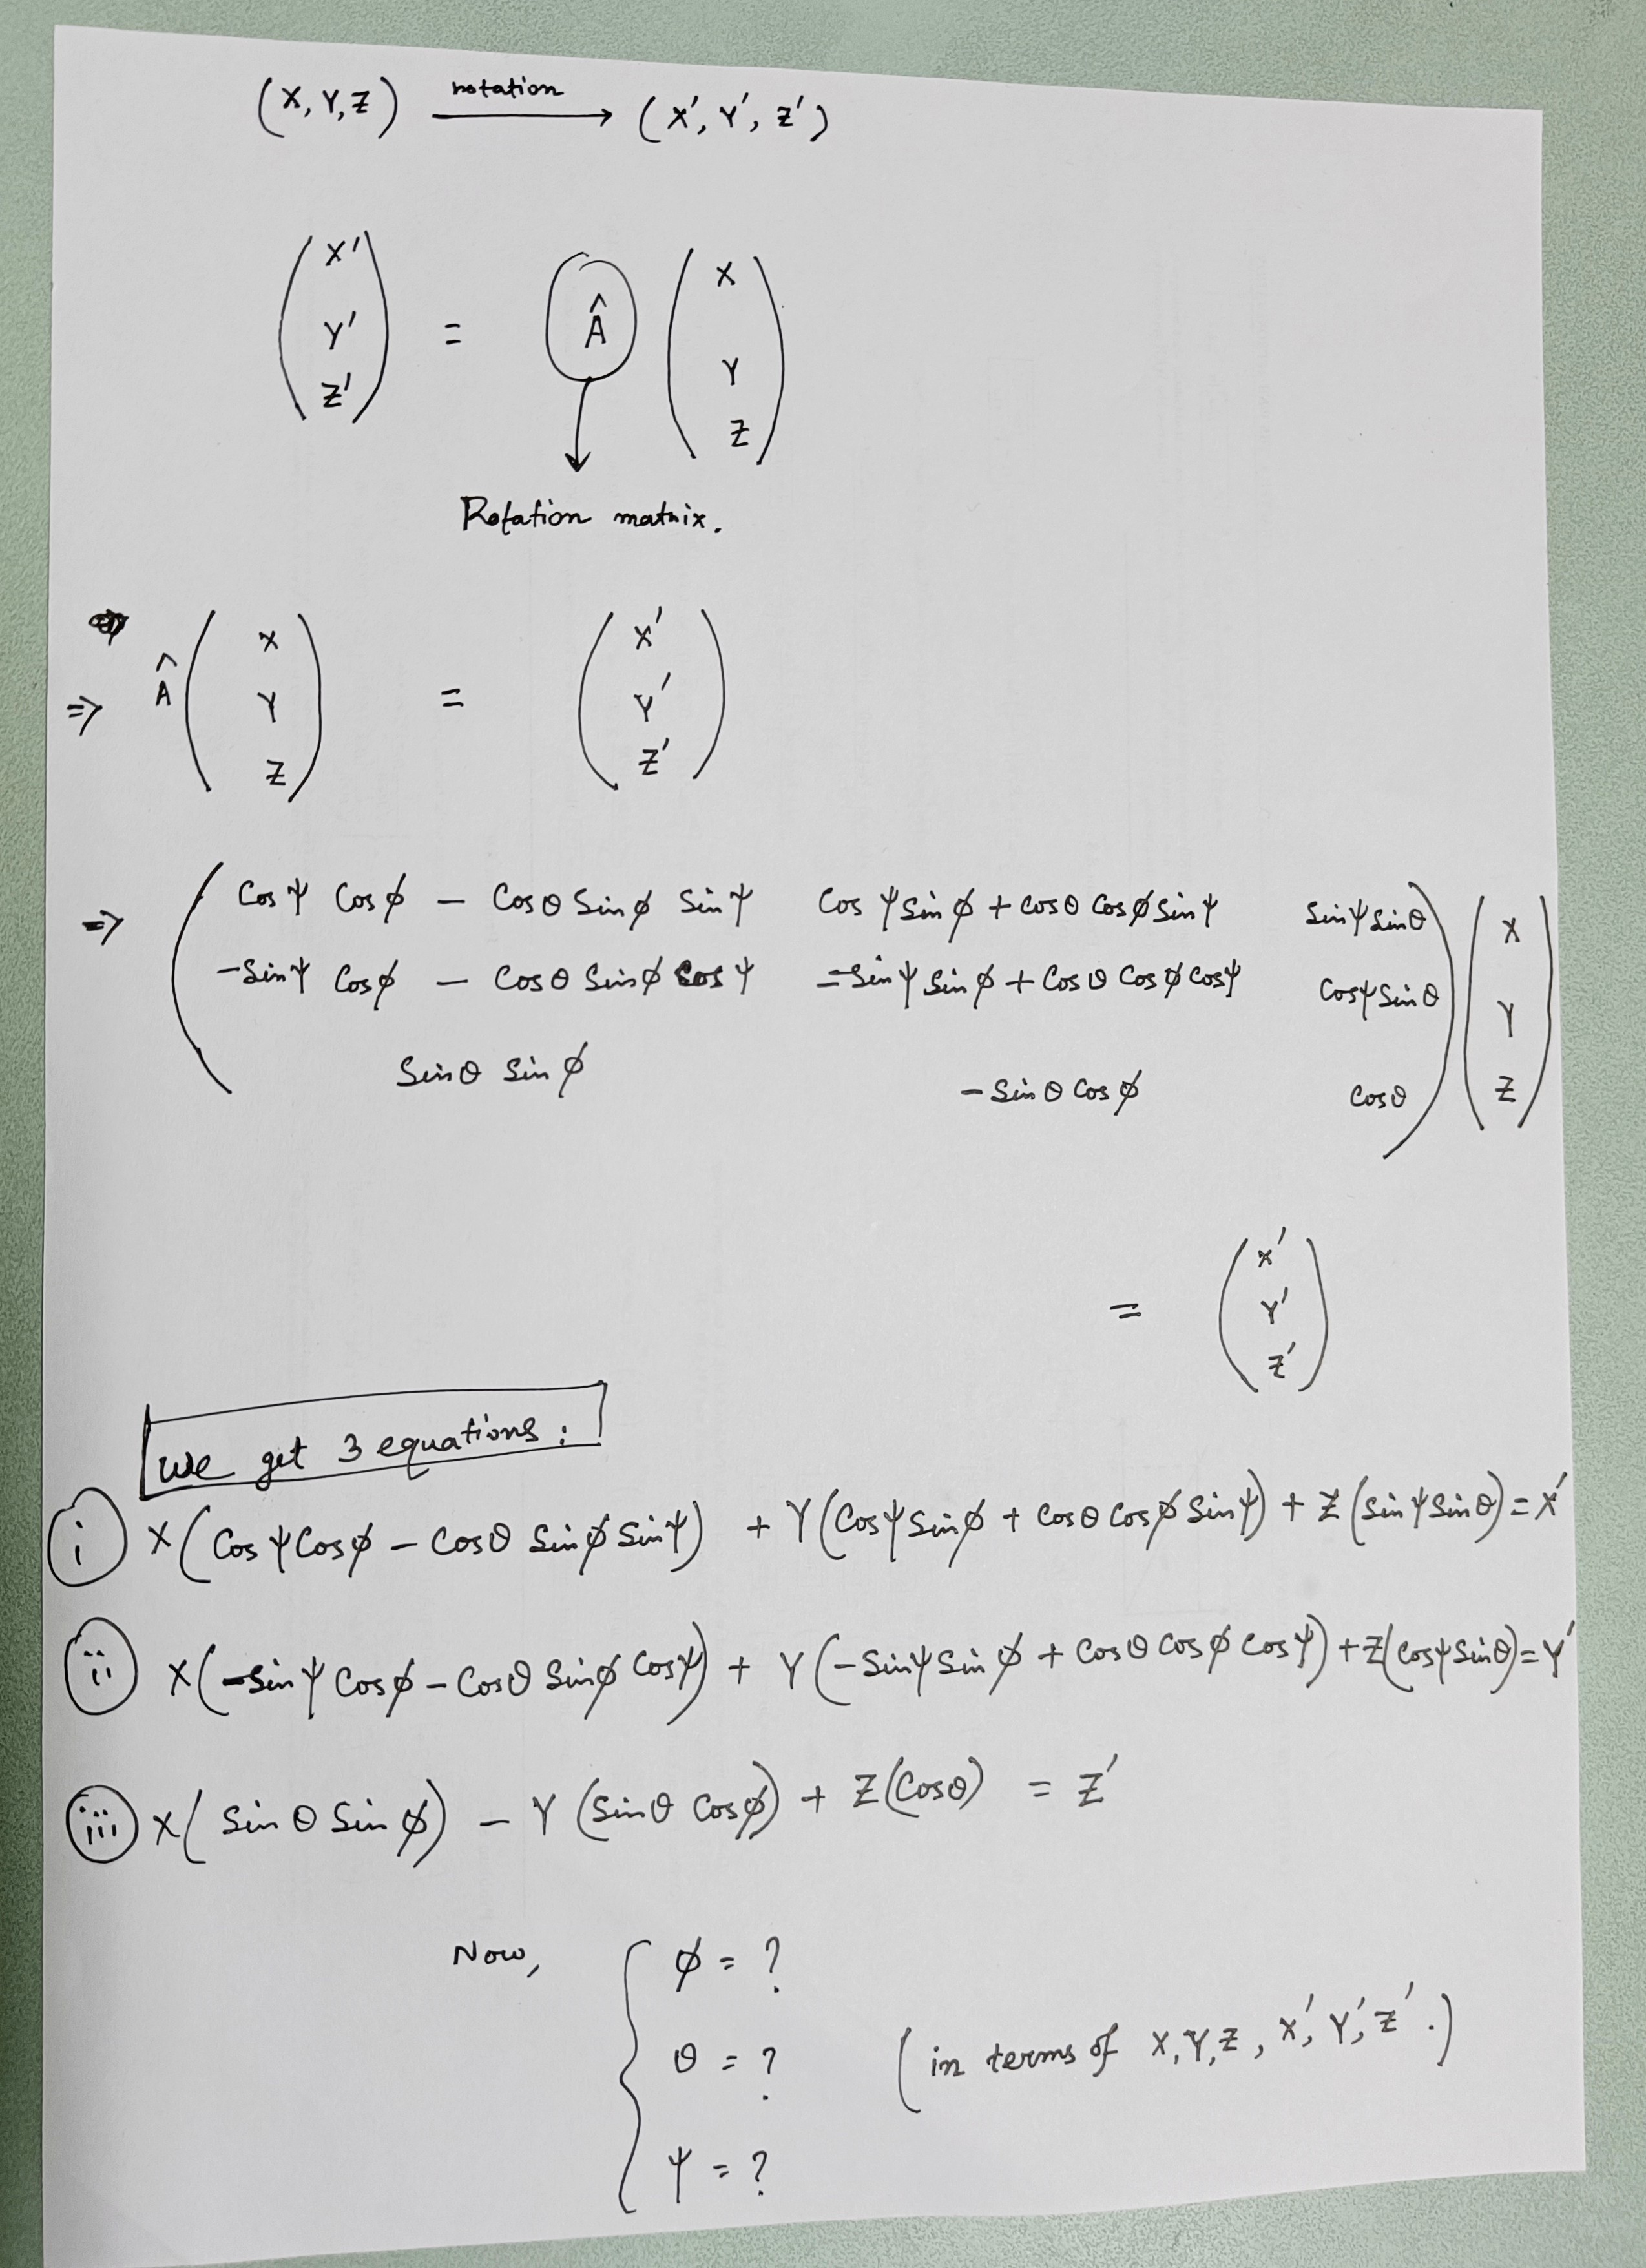 (X, Y, Z) rotation → (X', Y', Z')
(X' Y' Z') = Â (X Y Z)
Rotation matrix.
⇒ Â (X Y Z) = (X' Y' Z')
⇒ ( Cos ψ Cos φ − Cos θ Sin φ Sin ψ   Cos ψ Sin φ + Cos θ Cos φ Sin ψ   Sin ψ Sin θ ) ( X
−Sin ψ Cos φ − Cos θ Sin φ Cos ψ   −Sin ψ Sin φ + Cos θ Cos φ Cos ψ   Cos ψ Sin θ   Y
Sin θ Sin φ   − Sin θ Cos φ   Cos θ   Z )
= (X' Y' Z')
We get 3 equations :
(i) X ( Cos ψ Cos φ − Cos θ Sin φ Sin ψ ) + Y ( Cos ψ Sin φ + Cos θ Cos φ Sin ψ ) + Z ( Sin ψ Sin θ ) = X'
(ii) X ( −Sin ψ Cos φ − Cos θ Sin φ Cos ψ ) + Y ( −Sin ψ Sin φ + Cos θ Cos φ Cos ψ ) + Z ( Cos ψ Sin θ ) = Y'
(iii) X ( Sin θ Sin φ ) − Y ( Sin θ Cos φ ) + Z ( Cos θ ) = Z'
Now, { φ = ?
θ = ? (in terms of X, Y, Z, X', Y', Z'.)
ψ = ?